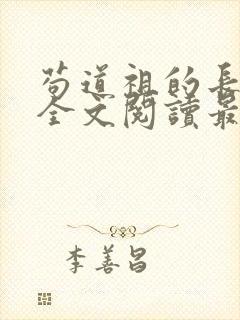 苟道祖的長
全文閱讀最
李善昌